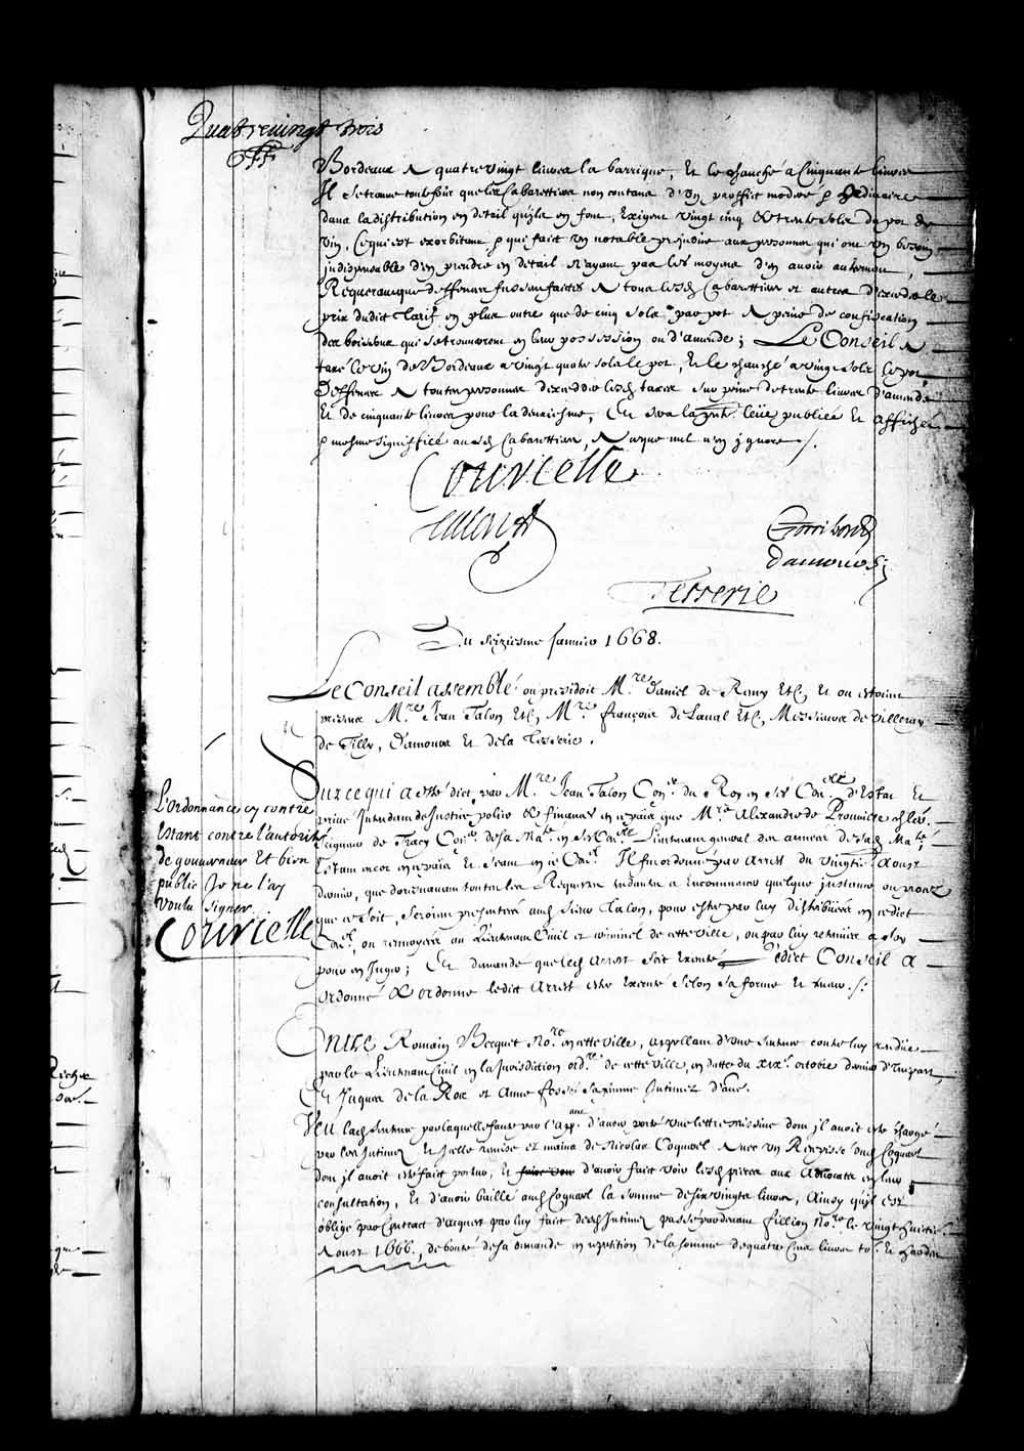 Quatrevingt trois
Bordeaux A quatrevingt livres la barrique, Et le chauché a Cinquante livres
Il se trouve toutefois que les Cabarettiers non contens d'un proffict moderé & ordinaire
dans la distribution en detail qu'ils en font, Exigent vingt cinq & trente sols du pot de
vin, Ce qui est exorbitant & qui fait un notable prejudice aux personnes qui ont un besoin
indispensable d'en prendre en detail n'ayans pas les moyens d'en avoir autrement,
Requerant que deffenses fussent faictes A tous lesd. Cabarettiers et autres d'exceder le
prix dudit Tarif en plus outre que de cinq sols par pot A peine de confiscation
des boissons qui se trouveront en leur possession ou d'amende; Le Conseil A
taxé le vin de Bordeaux a vingt quatre sols le pot, Et le chauché a vingt sols le pot,
Deffenses A toutes personnes d'exceder lesd. taxes sur peine de trente livres d'amende
Et de cinquante livres pour la deuxiesme, Et sera la pnte. leüe publiée Et affichée
& mesme signiffiée ausd. Cabarettiers, A ce que nul n'en ignore /.
Courcelle
Talon
Gorribon
Damours
Tesserie
Du seiziesme Janvier 1668.
Le Conseil assemblé ou presidoit M.re Daniel de Remy Etc, Et ou estoient
presens M.re Jean Talon Etc, M.re François de Laval Etc, Messieurs de Villeray
de Tilly, Damours Et de la Tesserie.
Sur ce qui a esté dict par M.re Jean Talon Con.er du Roy en ses Con.ls d'Estat Et
privé Intendant de Justice police & finances en ce païs que M.re Alexandre de Prouville chlr.
Seigneur de Tracy Con.er de sa Ma.té en ses Con.ls Lieutenant general des armées de sad. Ma.té
Estant encor en ce païs Et seant en ce Con.el Il fut ordonné par arrest du vingtie. Aoust
dernier, que doresnavant toutes les Requestes tendantes a Encommencer quelque instance ou procez
que ce soit, seroient presentées aud. sieur Talon, pour estre par luy distribuées en cedict
Con.el, ou renvoyées au Lieutenant Civil et criminel de cette ville, ou par luy retenues a soy
pour en Juger; Et demande que led. arrest soit Executé ledict Conseil a
ordonné & ordonne ledict arrest estre Executé selon sa forme Et teneur. /.
L'ordonnance cy contre
Estant contre l'autorité
de gouverneur Et bien
public Je ne l'ay
voulu signer
Courcelle
Entre Romain Becquet No.re en cette ville, appellant d'une sentence contre luy rendüe
par le Lieutenant Civil en la Jurisdiction ord.re de cette ville, en datte du xix.e octobre dernier d'une part,
Et Jugues de la Roe et Anne sa femme Intimez d'au.e
Veu lad. sentence par laquelle faute par l'app.ant d'avoir porté une lettre missive dont il avoit esté chargé
par les Intimez, Et Icelle remise es mains de Nicolas Coquerel Avec un Recepissé dud. Coquerel
dont il avoit esté fait porteur, Et d'avoir fait voir lesd. pieces aux Advocats en leur
consultation, Et d'avoir baillé aud. Coquerel la somme de six vingts livres, Ainsy qu'il est
obligé par Contract d'acquest par luy fait desd. Intimez passé pardevant Fillion No.re le vingt huictie.
Aoust 1666., debouté de sa demande en repetition de la somme de quatre Cens livres ts. Et